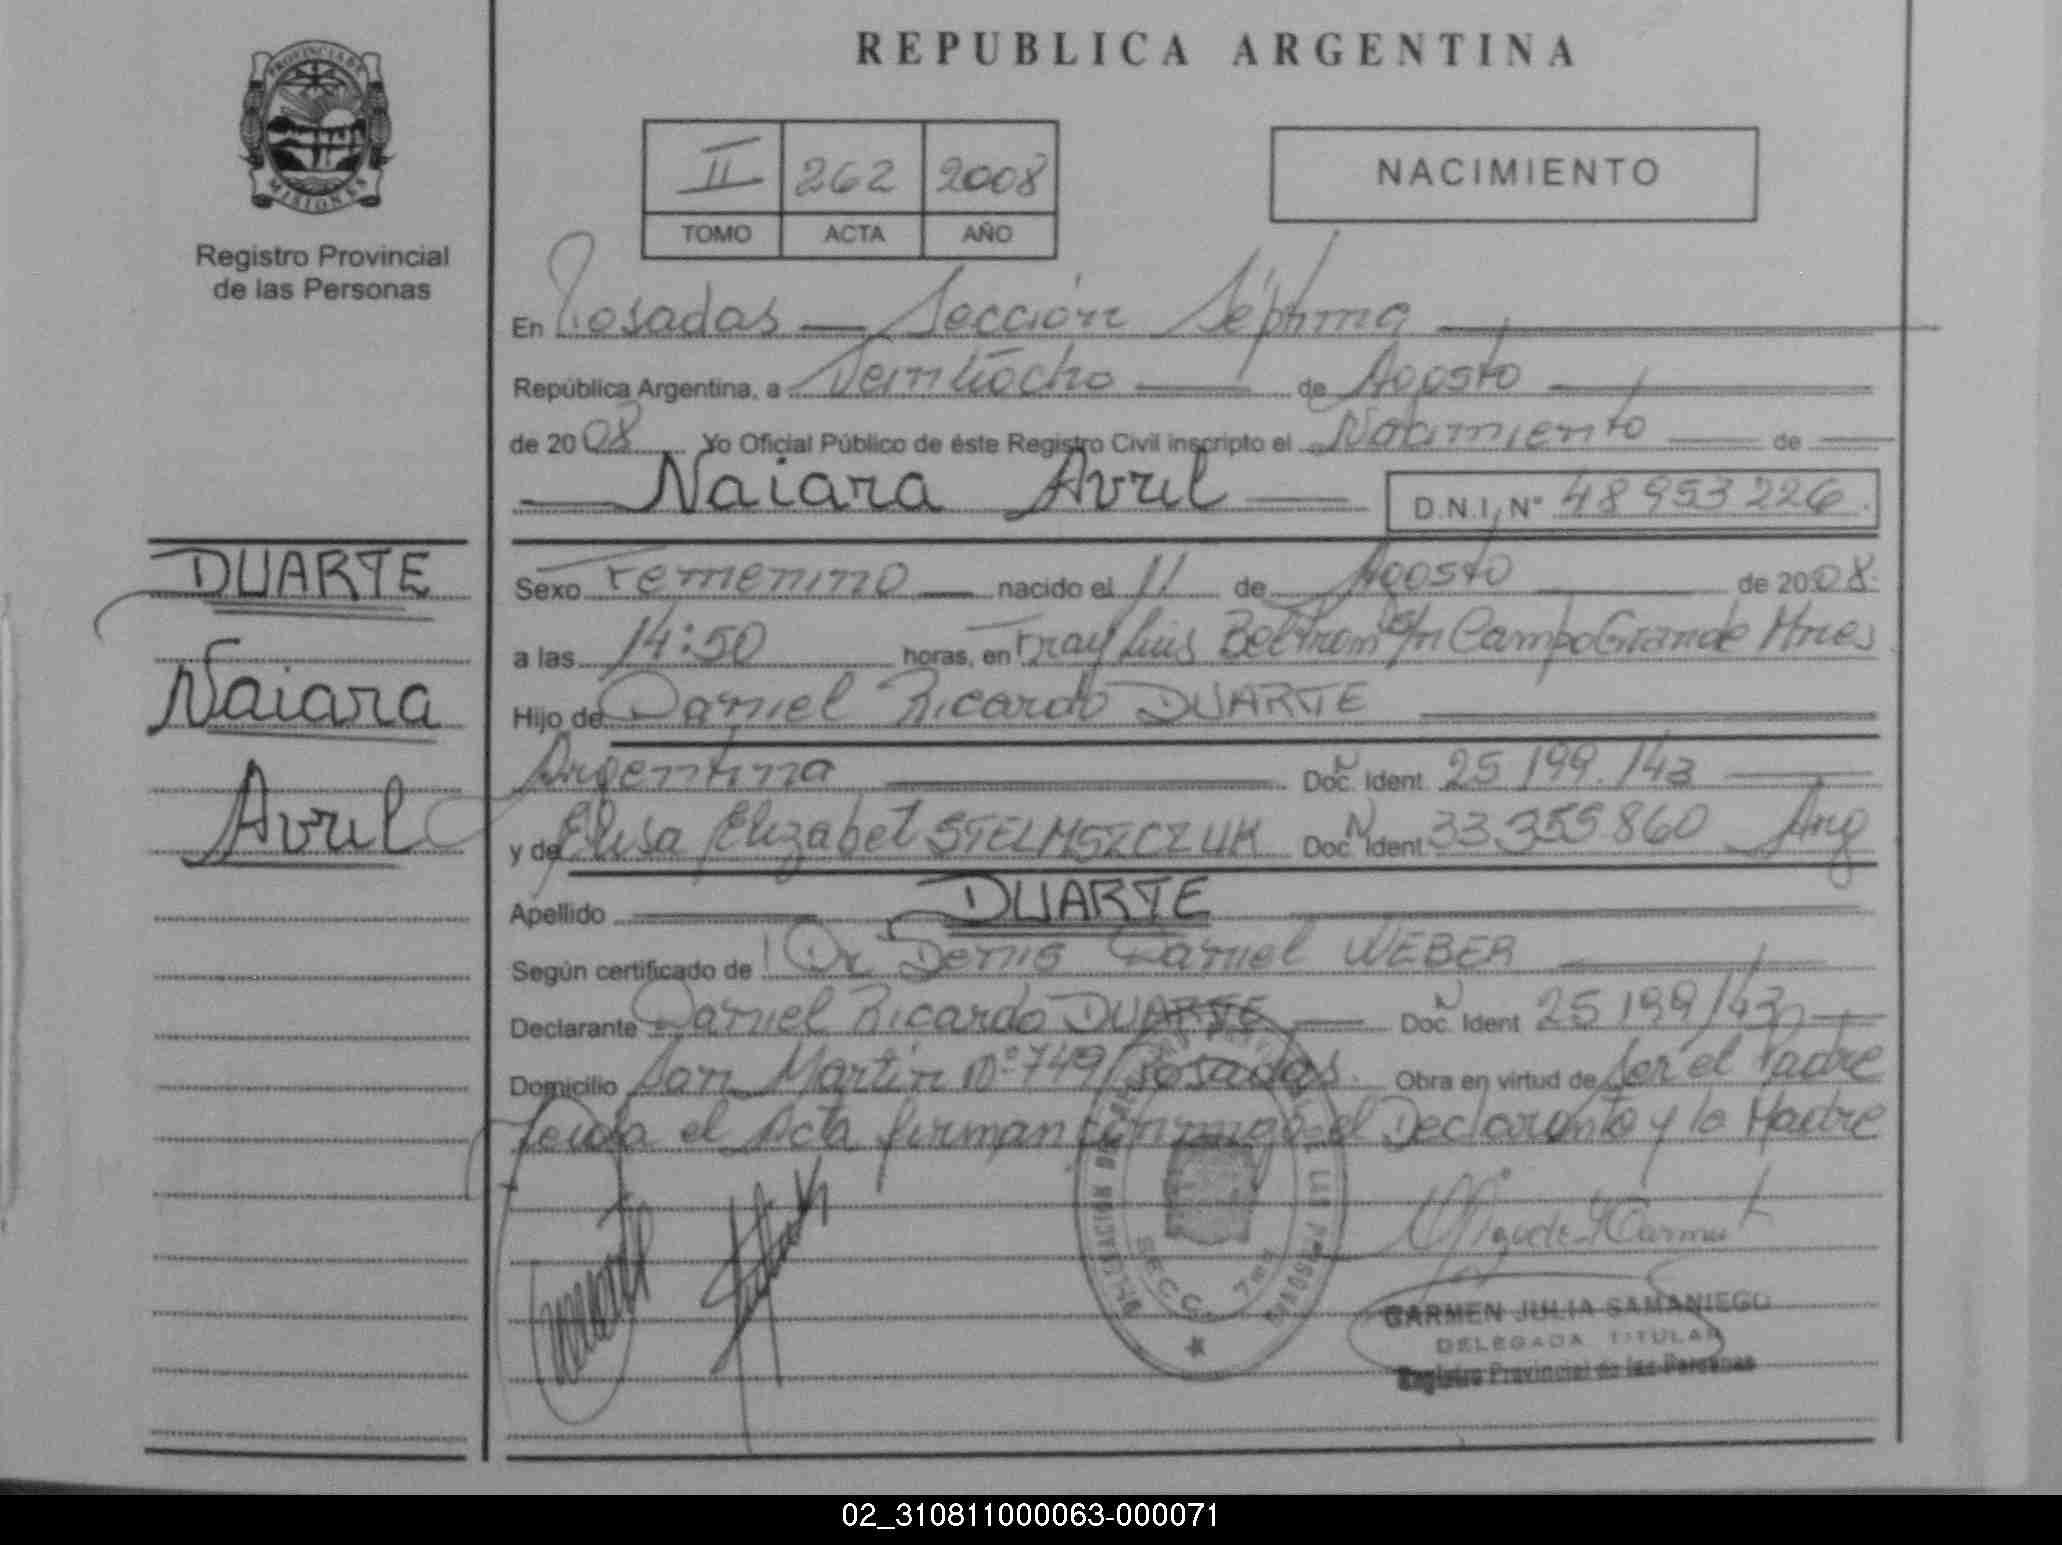 PROVINCIA DE
MISIONES
Registro Provincial
de las Personas
DUARTE
Naiara
Avril
REPUBLICA ARGENTINA
II 262 2008
TOMO ACTA AÑO
NACIMIENTO
En Posadas — Sección Séptima
República Argentina, a Veintiócho de Agosto
de 2008 Yo Oficial Público de éste Registro Civil inscripto el Nacimiento de
Naiara Avril D.N.I. N° 48953226
Sexo Femenino nacido el 11 de Agosto de 2008
a las 14:50 horas, en Fray Luis Beltram Campo Grande Mnes
Hijo de Daniel Ricardo DUARTE
Argentina Doc. Ident. 25 199.143
y de Elisa Elizabet Doc. Ident. 33.355860 Arg
Apellido DUARTE
Según certificado de Dr Denis Daniel WEBER
Declarante Daniel Ricardo DUARTE Doc. Ident 25 199143
Domicilio San Martin N° 749 Posadas. Obra en virtud de Ser el Padre
Leida el Acta firman conmigo el Declarante y la Madre
SECC. 7ma
CARMEN JULIA SAMANIEGO
DELEGADA TITULAR
Registro Provincial de las Personas
02_310811000063-000071